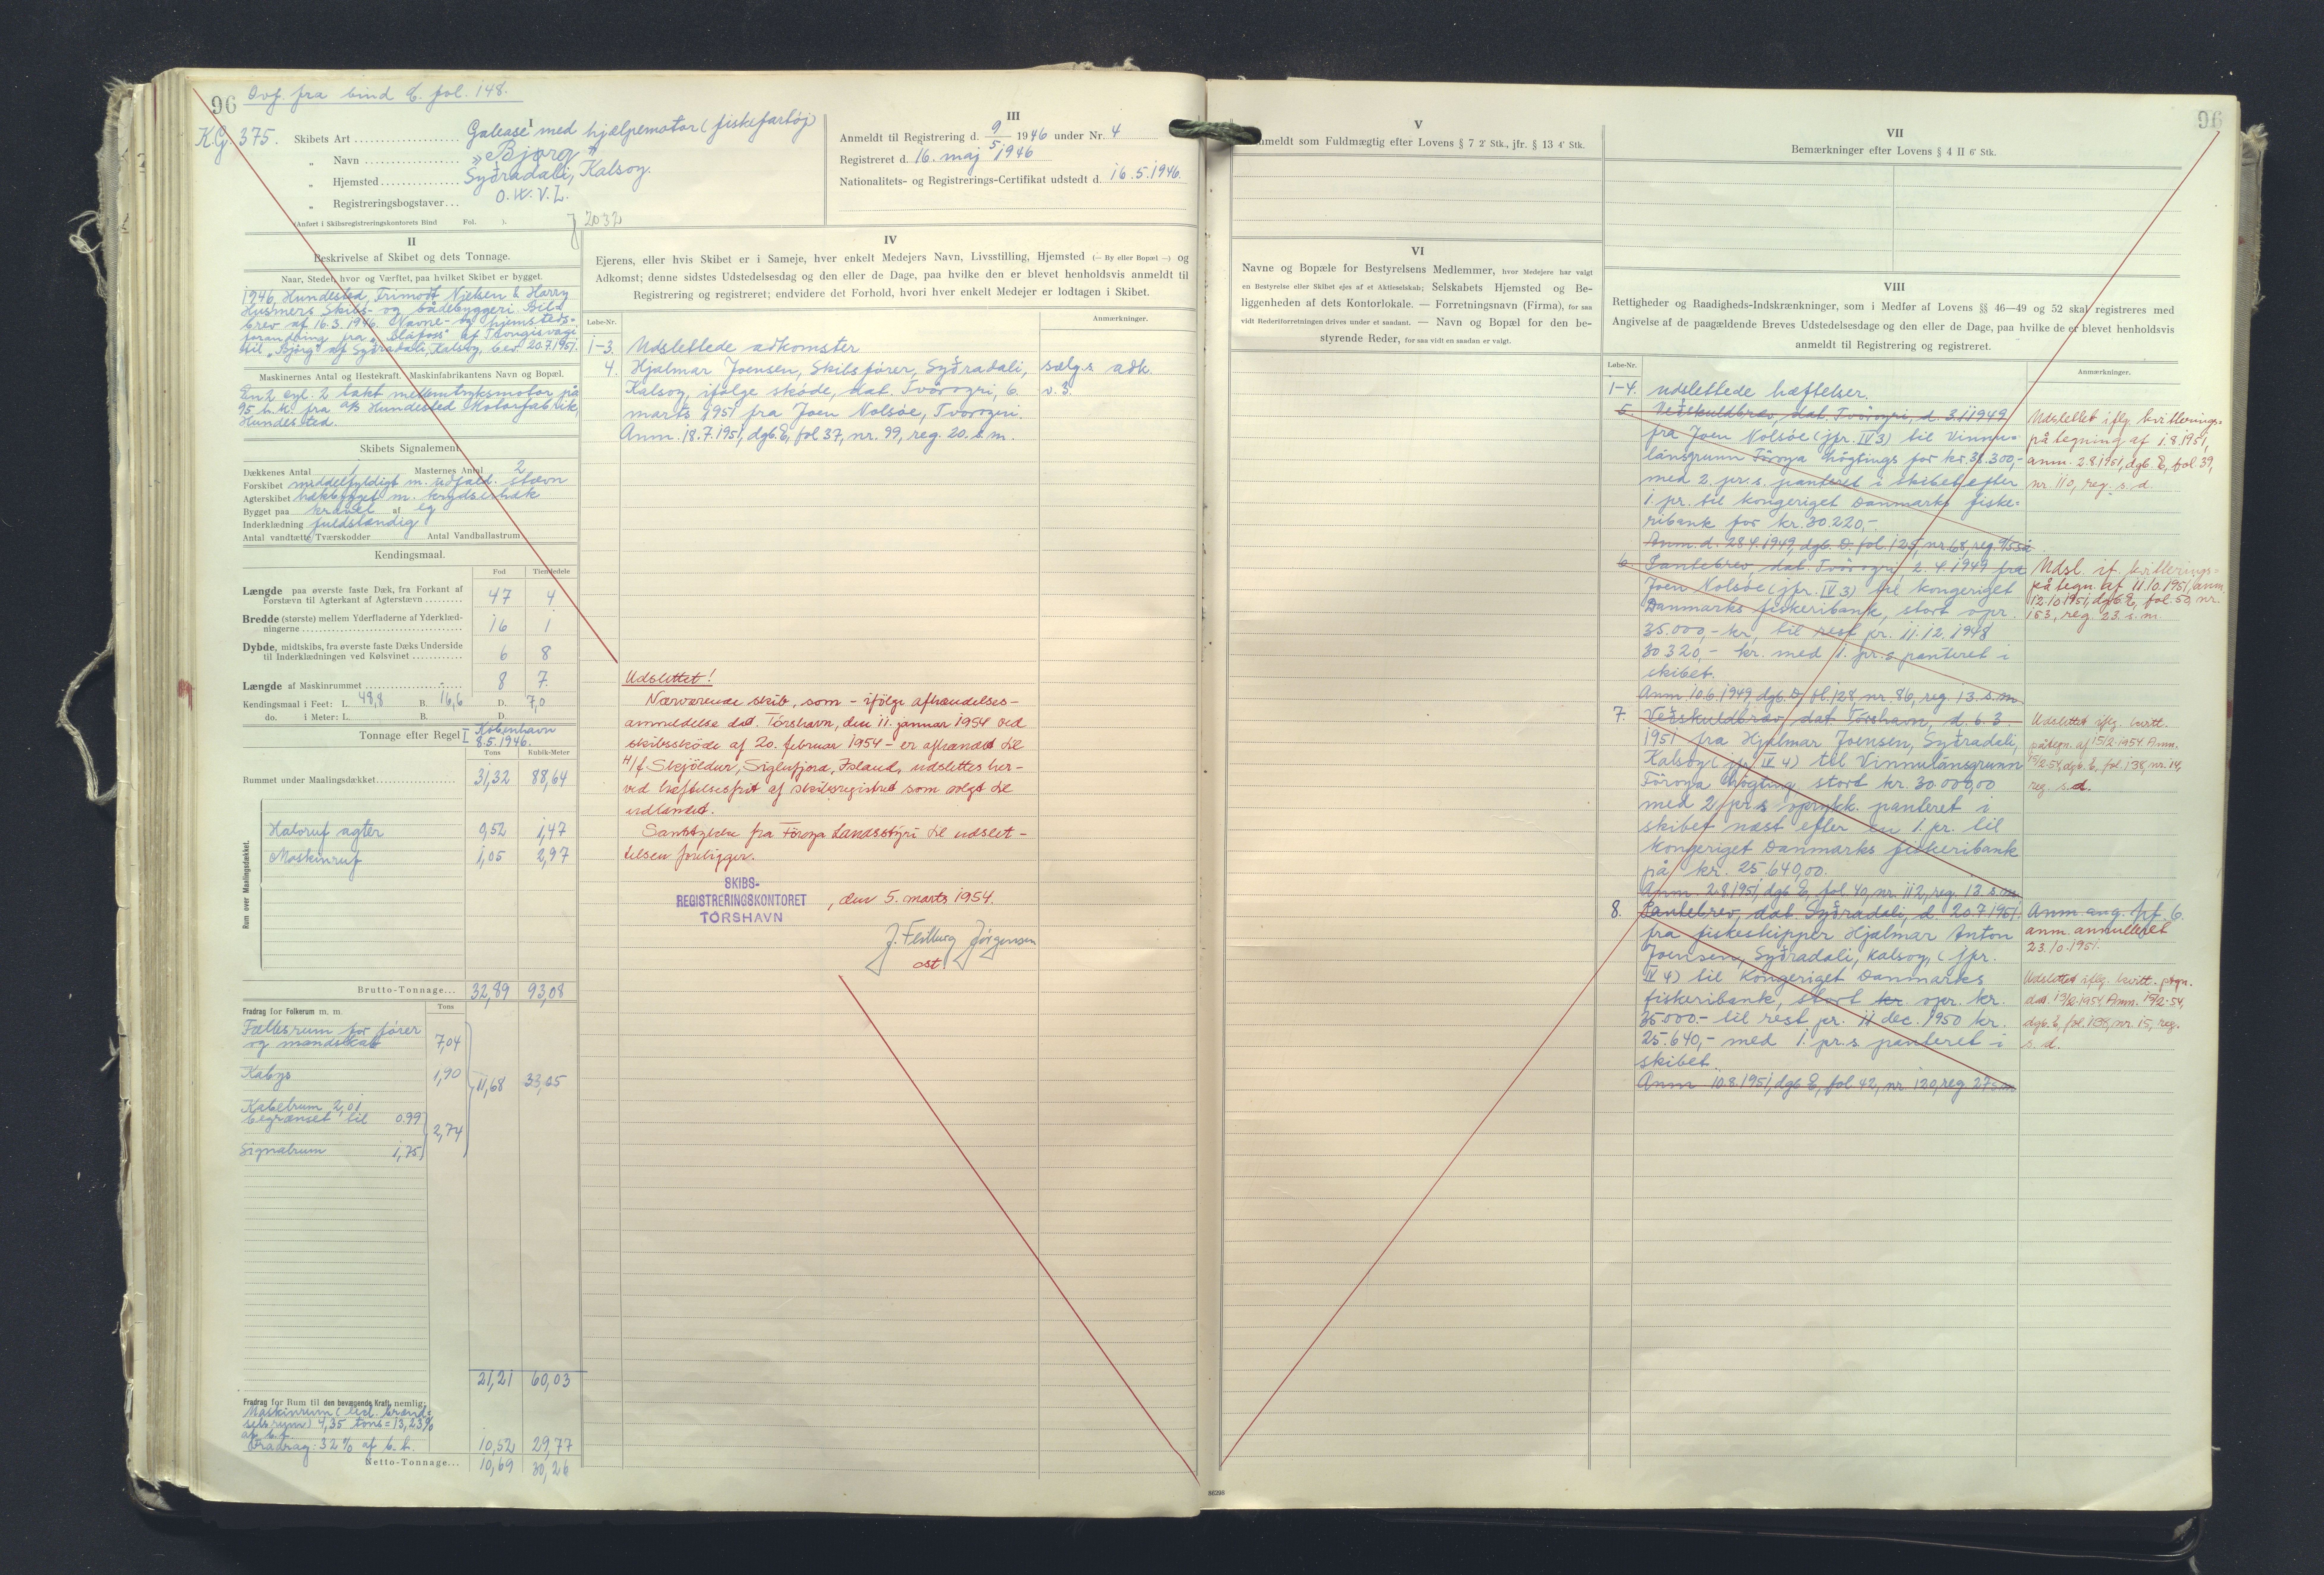 96 Ovf. fra bind E. fol. 148.
K.G. 375.
I
Skibets Art Galease med hjælpemotor (fiskefartøj)
„ Navn „Bjørg"
„ Hjemsted Syðradali, Kalsoy.
„ Registreringsbogstaver O.W.V.Z.
(Anført i Skibsregistreringskontorets Bind Fol. ).
2032
III
Anmeldt til Registrering d. 9/5 1946 under Nr. 4
Registreret d. 16. maj 1946
Nationalitets- og Registrerings-Certifikat udstedt d. 16.5.1946.
II
Beskrivelse af Skibet og dets Tonnage.
Naar, Stedet, hvor og Værftet, paa hvilket Skibet er bygget.
1946, Hundested, Trimodt Nielsen & Harry
Husmers Skibs- og bådebyggeri. Bil-
brev af 16.3.1946. Navne- og hjemsteds-
forandring fra „Blåfoss" af Trongisvági
til „Bjørg" af Syðradali, Kalsoy, bev. 20.7.1951.
Maskinernes Antal og Hestekraft. Maskinfabrikantens Navn og Bopæl.
En 2 cyl. 2 takt mellemtryksmotor på
95 h.k. fra A/S Hundested Motorfabrik,
Hundested.
Skibets Signalement
Dækkenes Antal 1 Masternes Antal 2
Forskibet middelfyldigt m. udfald. stævn
Agterskibet hækbygget m. krydserhæk
Bygget paa kravel af eg
Inderklædning fuldstændig
Antal vandtætte Tværskodder Antal Vandballastrum
Kendingsmaal.
Fod Tiendedele
Længde paa øverste faste Dæk, fra Forkant af
Forstævn til Agterkant af Agterstævn 47 4
Bredde (største) mellem Yderfladerne af Yderklæd-
ningerne 16 1
Dybde, midtskibs, fra øverste faste Dæks Underside
til Inderklædningen ved Kølsvinet 6 8
Længde af Maskinrummet 8 7
Kendingsmaal i Feet: L. 48,8 B. 16,6 D. 7,0
do. i Meter: L. B. D.
Tonnage efter Regel I København
8.5.1946.
Tons Kubik-Meter
Rummet under Maalingsdækket 31,32 88,64
Rum over Maalingsdækket.
Halvruf agter 0,52 1,47
Maskinruf 1,05 2,97
Brutto-Tonnage... 32,89 93,08
Fradrag for Folkerum m. m. Tons
Fællesrum for fører
og mandskab 7,04
Kabys 1,90
11,68 33,05
Kabelrum 2,01
begrænset til 0.99
2,74
Signalrum 1,75
21,21 60,03
Fradrag for Rum til den bevægende Kraft, nemlig:
Maskinrum (incl. brænd-
selsrum) 4,35 tons = 13,23%
af b.t.
Fradrag: 32% af b.t. 10,52 29,77
Netto-Tonnage... 10,69 30,26
IV
Ejerens, eller hvis Skibet er i Sameje, hver enkelt Medejers Navn, Livsstilling, Hjemsted (— By eller Bopæl —) og
Adkomst; denne sidstes Udstedelsesdag og den eller de Dage, paa hvilke den er blevet henholdsvis anmeldt til
Registrering og registreret; endvidere det Forhold, hvori hver enkelt Medejer er lodtagen i Skibet.
Løbe-Nr. Anmærkninger.
1-3. Udslettede adkomster
4. Hjalmar Joensen, Skibsfører, Syðradali, sælgs adk.
Kalsoy, ifølge skøde, dat. Tvöroyri, 6. v. 3.
marts 1951 fra Joen Nolsøe, Tvöroyri.
Anm. 18.7.1951, dgb. E, fol 37, nr. 99, reg. 20. s.m.
Udslettet!
Nærværende skib, som – ifølge afhændelses-
anmeldelse dat. Tórshavn, den 11. januar 1954 ved
skibsskøde af 20. februar 1954 – er afhændet til
H/f Skjöldur, Siglufjord, Island, udslettes her-
ved hæftelsesfrit af skibsregistret som solgt til
udlandet.
Samtykke fra Föroya Landsstýri til udslet-
telsen foreligger.
SKIBS-
REGISTRERINGSKONTORET
TÓRSHAVN
, den 5. marts 1954.
J. Feilberg Jørgensen
cst
96
V
Anmeldt som Fuldmægtig efter Lovens § 7 2' Stk., jfr. § 13 4' Stk.
VI
Navne og Bopæle for Bestyrelsens Medlemmer, hvor Medejere har valgt
en Bestyrelse eller Skibet ejes af et Aktieselskab; Selskabets Hjemsted og Be-
liggenheden af dets Kontorlokale. — Forretningsnavn (Firma), for saa
vidt Rederiforretningen drives under et saadant. — Navn og Bopæl for den be-
styrende Reder, for saa vidt en saadan er valgt.
VII
Bemærkninger efter Lovens § 4 II 6' Stk.
VIII
Rettigheder og Raadigheds-Indskrænkninger, som i Medfør af Lovens §§ 46—49 og 52 skal registreres med
Angivelse af de paagældende Breves Udstedelsesdage og den eller de Dage, paa hvilke de er blevet henholdsvis
anmeldt til Registrering og registreret.
Løbe-Nr. Anmærkninger.
1-4. Udslettede hæftelser.
5. Veðskuldbrev, dat. Tvöroyri, d. 3.11 1949
fra Joen Nolsøe (jfr. IV 3) til Vinnu-
lánsgrunn Föroya Lögtings for kr. 38.300,-
med 2. pr.s. panteret i skibet efter
1. pr. til kongeriget Danmarks fiske-
ribank for kr. 30.220,-.
Anm. d. 28.4.1949, dgb. D. fol. 125, nr 68, reg. 4/5 s.å.
Udslettet iflg. kvitterings-
påtegning af 1.8.1951,
anm. 2.8.1951, dgb. E, fol 39,
nr. 110, reg. s. d.
6. Pantebrev, dat. Tvöroyri 2.4.1949 fra
Joen Nolsøe (jfr. IV 3) til kongeriget
Danmarks fiskeribank, stort opr.
35.000,- kr, til rest pr. 11.12.1948
30320,- kr. med 1. pr.s panteret i
skibet.
Anm 10.6.1949 dgb D fol 128 nr 86, reg. 13. s.m
Udsl. if. kvitterings-
påtegn. af 11.10.1951, anm
12.10 1951, dgb E, fol. 50, nr.
153, reg. 23. s.m.
7. Veðskuldbrev dat Tórshavn, d. 6.3.
1951 fra Hjalmar Joensen, Syðradali,
Kalsoy (jfr. IV 4) til Vinnulánsgrunn
Föroya Lögting stort kr. 30.000,00
med 2 pr.s oprykk. panteret i
skibet næst efter en 1. pr. til
kongeriget Danmarks fiskeribank
på kr. 25.640,00.
Anm. 2.8.1951, dgb E, fol. 40, nr. 112, reg. 13. s.m
Udslettet iflg. kvitt.
påtegn. af 15/2 1954 Anm.
15/2-54, dgb. E, fol. 138, nr. 14,
reg. s.d.
8. Pantebrev, dat. Syðradali, d. 20.7.1951
fra fiskeskipper Hjalmar Anton
Joensen, Syðradali, Kalsoy, (jfr.
IV 4) til Kongeriget Danmarks
fiskeribank, stort kr. opr. kr.
35000.- til rest pr. 11 dec. 1950 kr.
25.640,- med 1. pr.s. panteret i
skibet.
Anm 10.8.1951, dgb E, fol 42, nr 120, reg 27 s.m
Anm ang. pf. 6.
anm. annulleret
23.10.1951.
Udslettet iflg. kvitt. ptgn.
dat. 15/2-1954 Anm. 15/2-54,
dgb. E, fol. 138, nr. 15, reg.
s. d.
86298